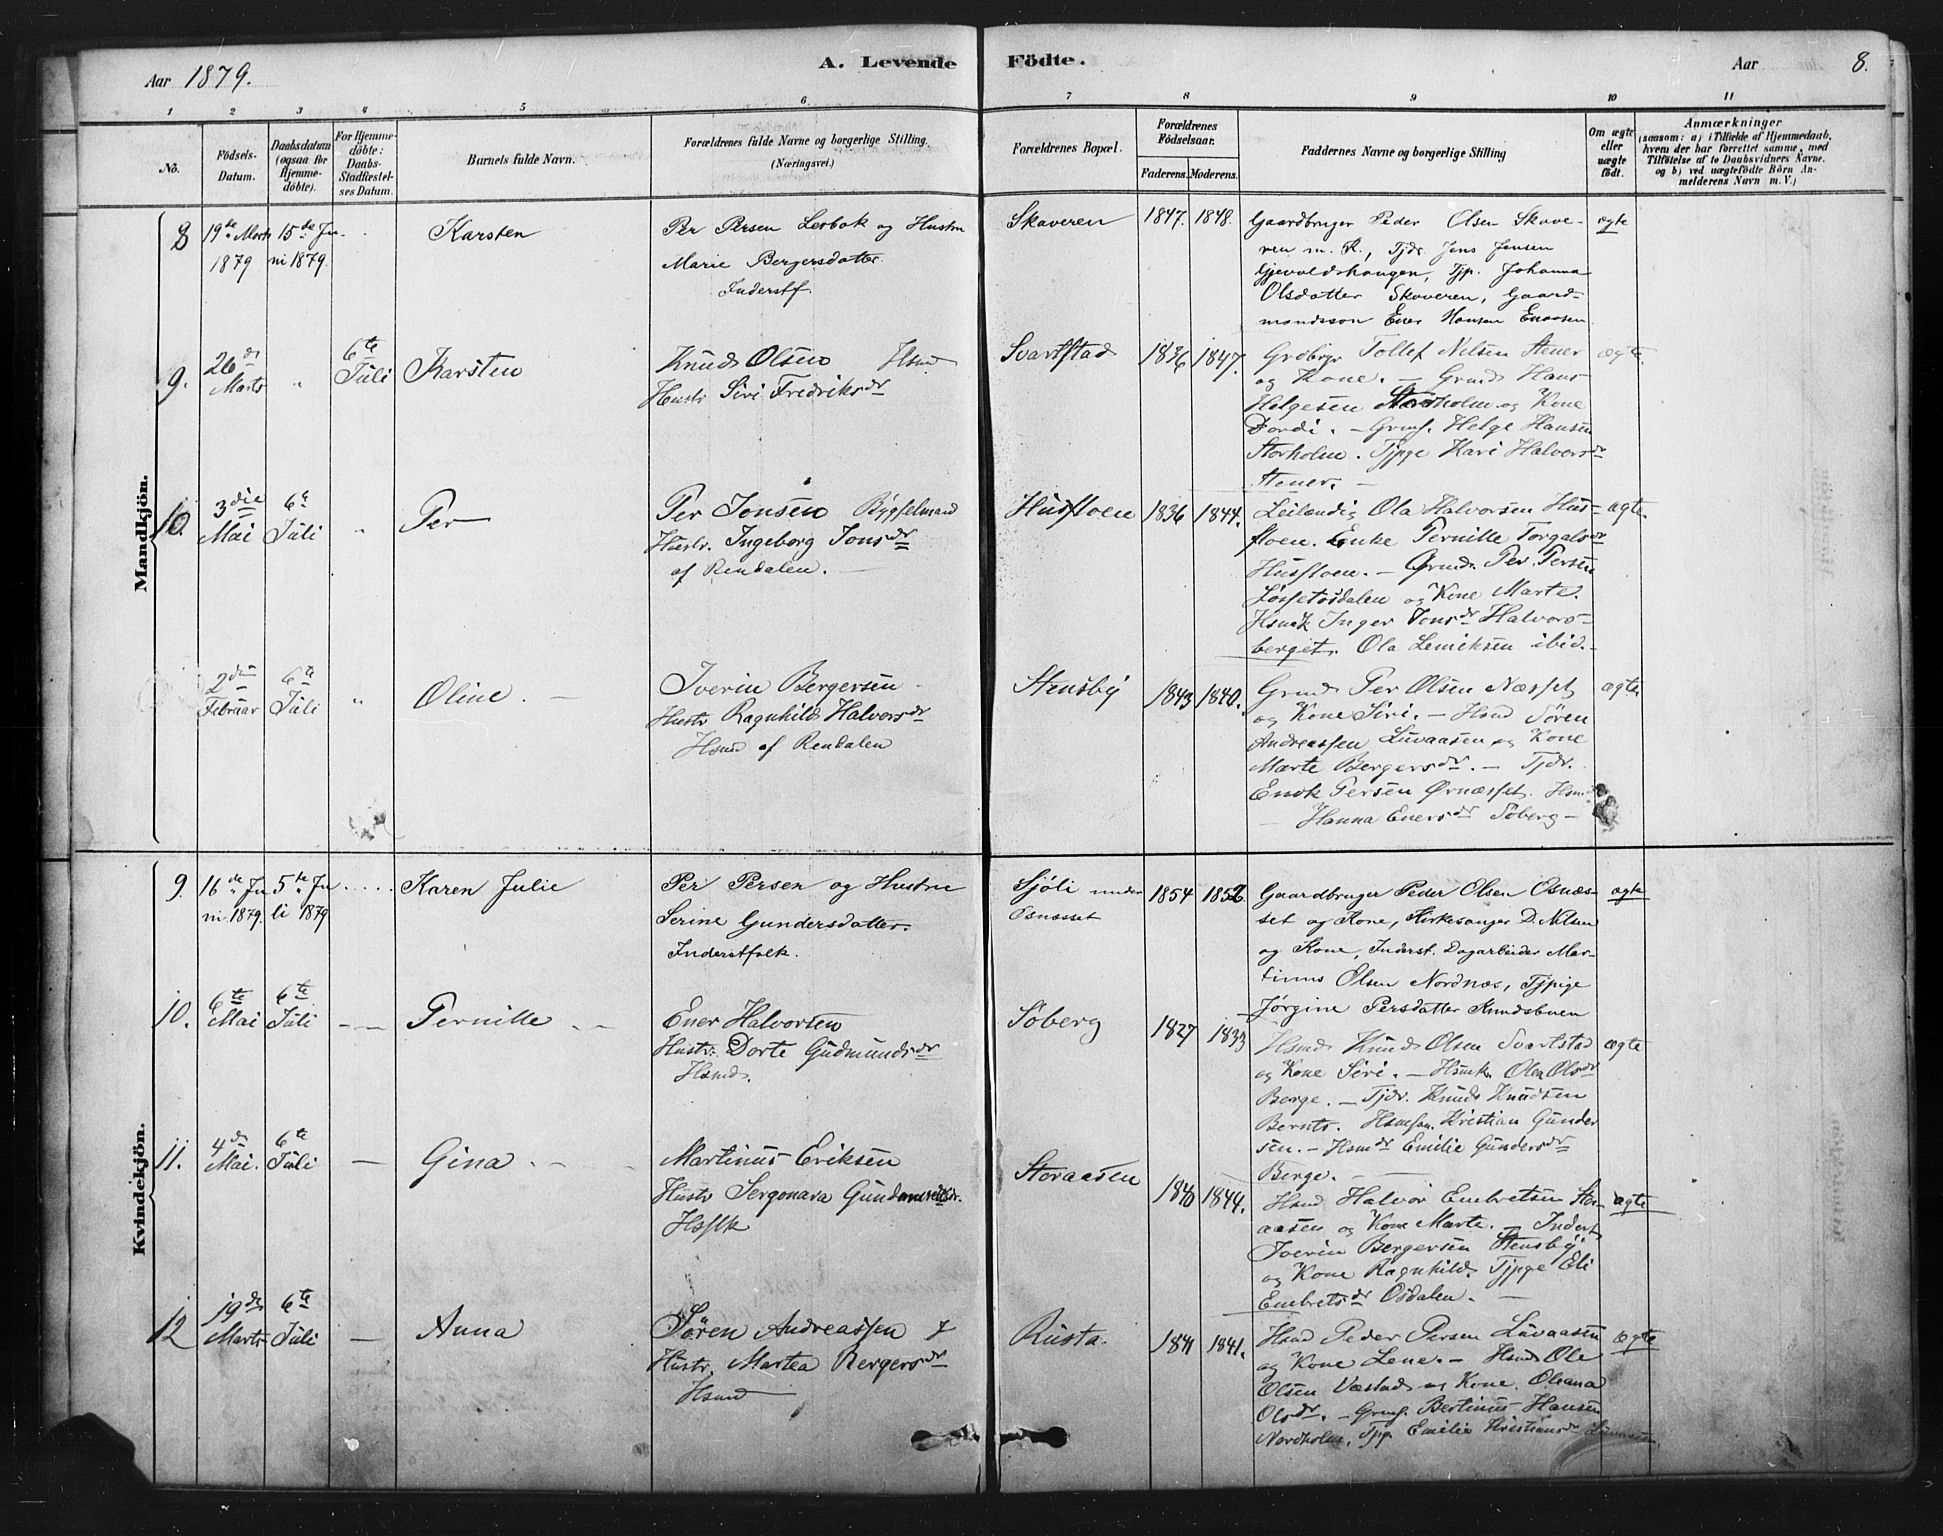 Aar 1879. A. Levende Födte. Aar 8.
1 2 3 4 5 6 7 8 9 10 11
No.
Födsels-Datum.
Daabsdatum (ogsaa for Hjemme-döbte).
For Hjemme-döbte: Daabs-Stadfæstel-ses Datum.
Barnets fulde Navn.
Forældrenes fulde Navne og borgerlige Stilling. (Næringsvei.)
Forældrenes Bopæl.
Forældrenes Födselsaar. Faderens. Moderens.
Faddernes Navne og borgerlige Stilling
Om ægte eller uægte födt.
Anmærkninger
(saasom: a) i Tilfælde af Hjemmedaab,
hvem der har forrettet samme, med
Tilföielse af to Daabsvidners Navne.
og b) ved uægtefödte Börn An-
melderens Navn m. V.)
Mandkjön.
8 19de Marts 1879 15de Ju-ni 1879. Karsten
Per Persen Lerbak og Hustru
Marie Bergersdatter
Inderstf.
Skaveren 1847. 1848.
Gaardbruger Peder Olsen Skave-
ren m. K., Tjdr. Jens Jensen
Gjevaldshaugen, Tjp. Johanna
Olsdatter Skaveren, Gaard-
mandsson Ener Hansen
ægte
9. 26de Marts " 6te Juli Karsten
Knud Olsen Hsmd
Hustr Siri Fredriksdr
Svartstad 1836 1847.
Grdbrgr Tollef Nilsen Stener
og Kone. — Grmd Hans
Helgesen Storholm og Kone
Dordi. — Grmf. Helge Hansen
Storholm. Tjpge Kari Halversdr
Stener. —
ægte
10. 3die Mai 6te Juli " Per
Per Jonsen Bygselmand
Hustr. Ingeborg Jonsdr
af Rendalen. —
Husfloen 1836 1844.
Leilænding Ola Halvorsen Hus-
floen. Enke Pernille Torgalsdr
Husfloen. — Grmd. Per Persen
og Kone Marte.
Hsmk Inger Jonsdr Halvors-
berget. Ola ibid. -
ægte.
2den Februar 6te Juli " Oline. —
Iverin Bergersen
Hustr Ragnhild Halversdr
Hsmd af Rendalen
Stensby 1843 1840.
Grmd Per Olsen Næsset
og Kone Siri. — Hsmd Søren
Andreassen Luvaasen og Kone
Marte Bergersdr. — Tjdr.
Enok Persen Ørnæsset. Hsmdr
Hanna Enersdr Søberg —
ægte
Kvindekjön.
9. 16de Ju-ni 1879. 5te Ju-li 1879 Karen Julie
Per Persen og Hustru
Serine Gundersdatter.
Inderstfolk.
Sjøli under Osnæsset 1854 1852.
Gaardbruger Peder Olsen Osnæs-
set og Kone, Kirkesanger D. Nilsen
og Kone, Inderst. Dagarbeider Mar-
tinus Olsen Nordnæs, Tjpige
Jørgine Persdatter Knudsbuen
ægte
10. 6te Mai 6te Juli — — Pernille
Ener Halvorsen
Hustr. Dorte Gudmundsdr
Hsmd.
Søberg 1827 1833
Hsmd Knud Olsen Svartstad
og Kone Siri. — Hsmk. Olea Olsdr
Berge. — Tjdr. Knud Knudsen
Bernts. Hsmsøn. Kristian Gunder
sen. — Hsmdr Emilie Gundersdr
Berge. —
ægte
11. 4de Mai. 6te Juli — Gina. —
Martinus Eriksen
Hustr Sergonara Gundersdr.
Hsflk
Storaasen 1840 1844.
Hsmd Halvor Embretsen Stor-
aasen og Kone Marte. — Inderst
Iverin Bergersen Stensby
og Kone Ragnhild. Tjpge Eli
Embretsdr Osdalen. —
ægte
12 19de Marts 6te Juli — Anna
Søren Andreassen &
Hustr. Martea Bergersdr
Hsmd
Rusta. 1841 1841.
Hsmd Peder Persen Luvaasen
og Kone Lene. — Hsmd Ole
Olsen Væstad og Kone Oleana
Olsdr. — Grmf. Bertinus Hansen
Nordholm. Tjpg Emilie Kristiansdr Luvaasen.
ægte